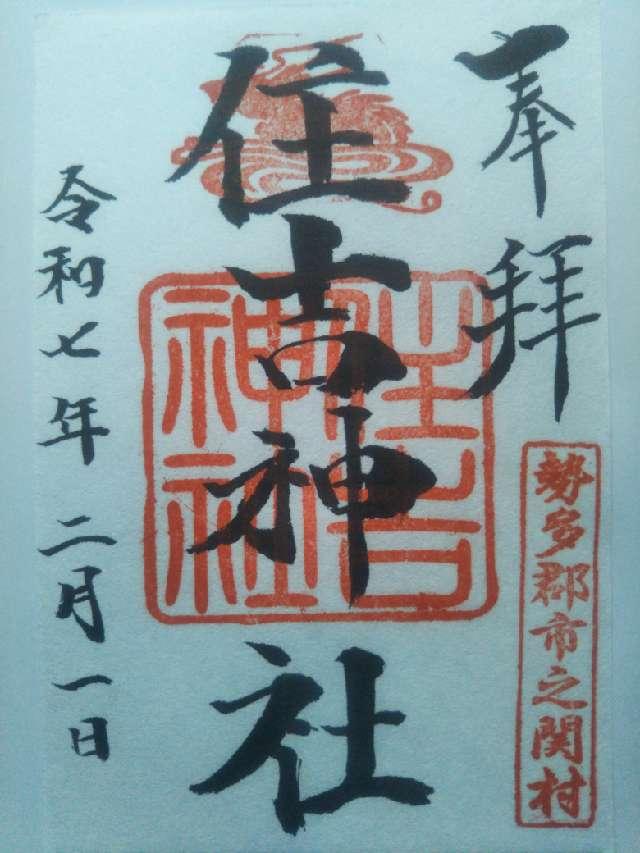 奉拝
勢多郡市之関村
住吉神社
住吉神社
令和七年二月一日